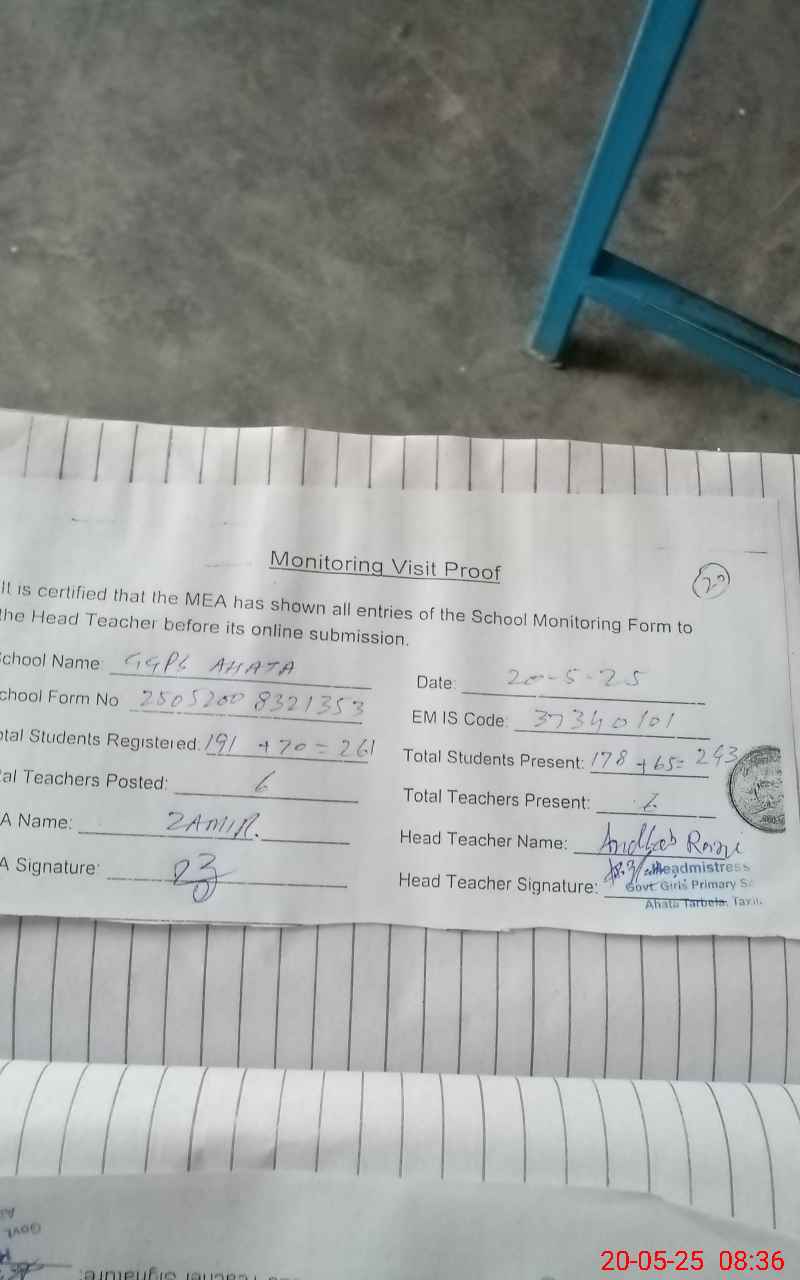 Monitoring Visit Proof
20
It is certified that the MEA has shown all entries of the School Monitoring Form to
the Head Teacher before its online submission.
School Name GGPS AHATA
Date: 20-5-25
chool Form No 25052008321353
EMIS Code: 37340101
otal Students Registered: 191 + 70 = 261
Total Students Present: 178 + 65 = 243
tal Teachers Posted: 6
Total Teachers Present:
A Name: ZAMIR.
Head Teacher Name:
A Signature:
Head Teacher Signature:
Headmistress
Govt. Girls Primary S
Ahata Tarbela, Taxil
Govt.
Teacher Signature
20-05-25 08:36